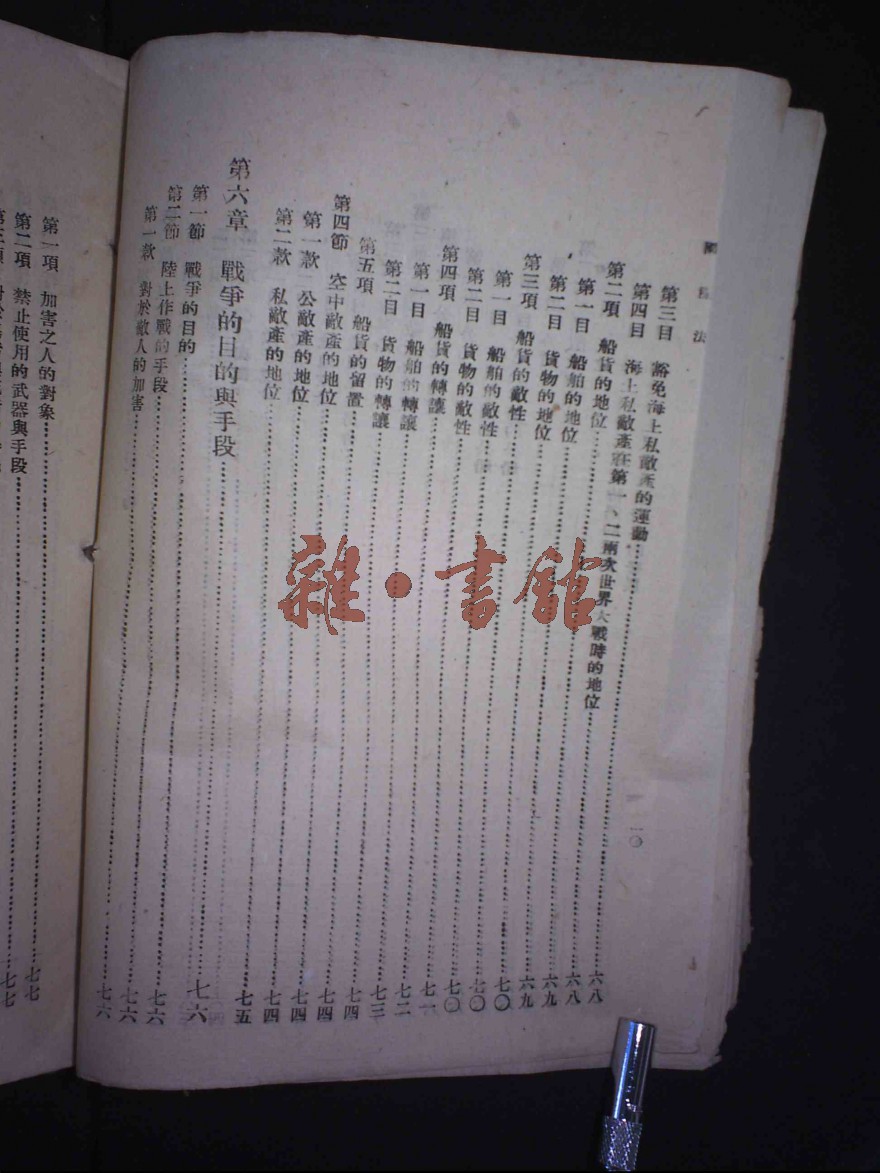 國際法
一〇
第三目 豁免海上私敵產的運動……六八
第四目 海上私敵產在第一、二兩次世界大戰時的地位……六八
第二項 船貨的地位……六九
第一目 船舶的地位……六九
第二目 貨物的地位……七〇
第三項 船貨的敵性……七〇
第一目 船舶的敵性……七〇
第二目 貨物的敵性……七一
第四項 船貨的轉讓……七二
第一目 船舶的轉讓……七三
第二目 貨物的轉讓……七四
第五項 船貨的留置……七四
第四節 空中敵產的地位……七四
第一款 公敵產的地位……七四
第二款 私敵產的地位……七五
第六章 戰爭的目的與手段……七六
第一節 戰爭的目的……七六
第二節 陸上作戰的手段……七六
第一款 對於敵人的加害……七六
第一項 加害之人的對象……七七
第二項 禁止使用的武器與手段……七七
雜·書館